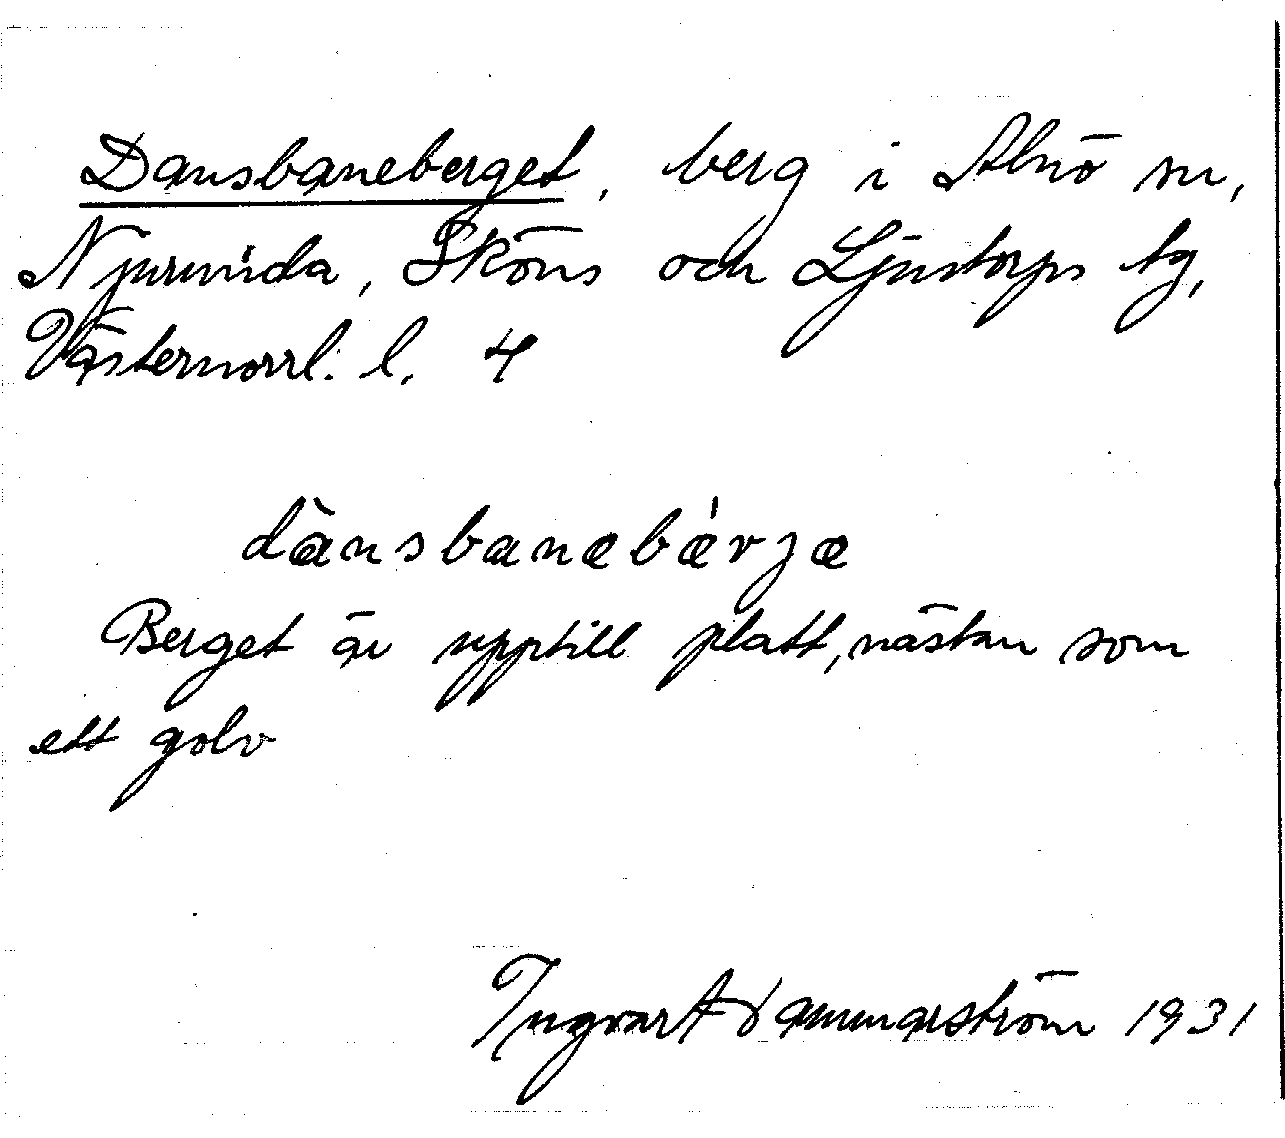 Dansbaneberget, berg i Alnö sn,
Njurunda, Sköns och Ljustorps tg,
Västernorrl. l. 4
dànsbanæbǽrjæ
Berget är upptill platt, nästan som
ett golv
Ingvart Hammarström 1931